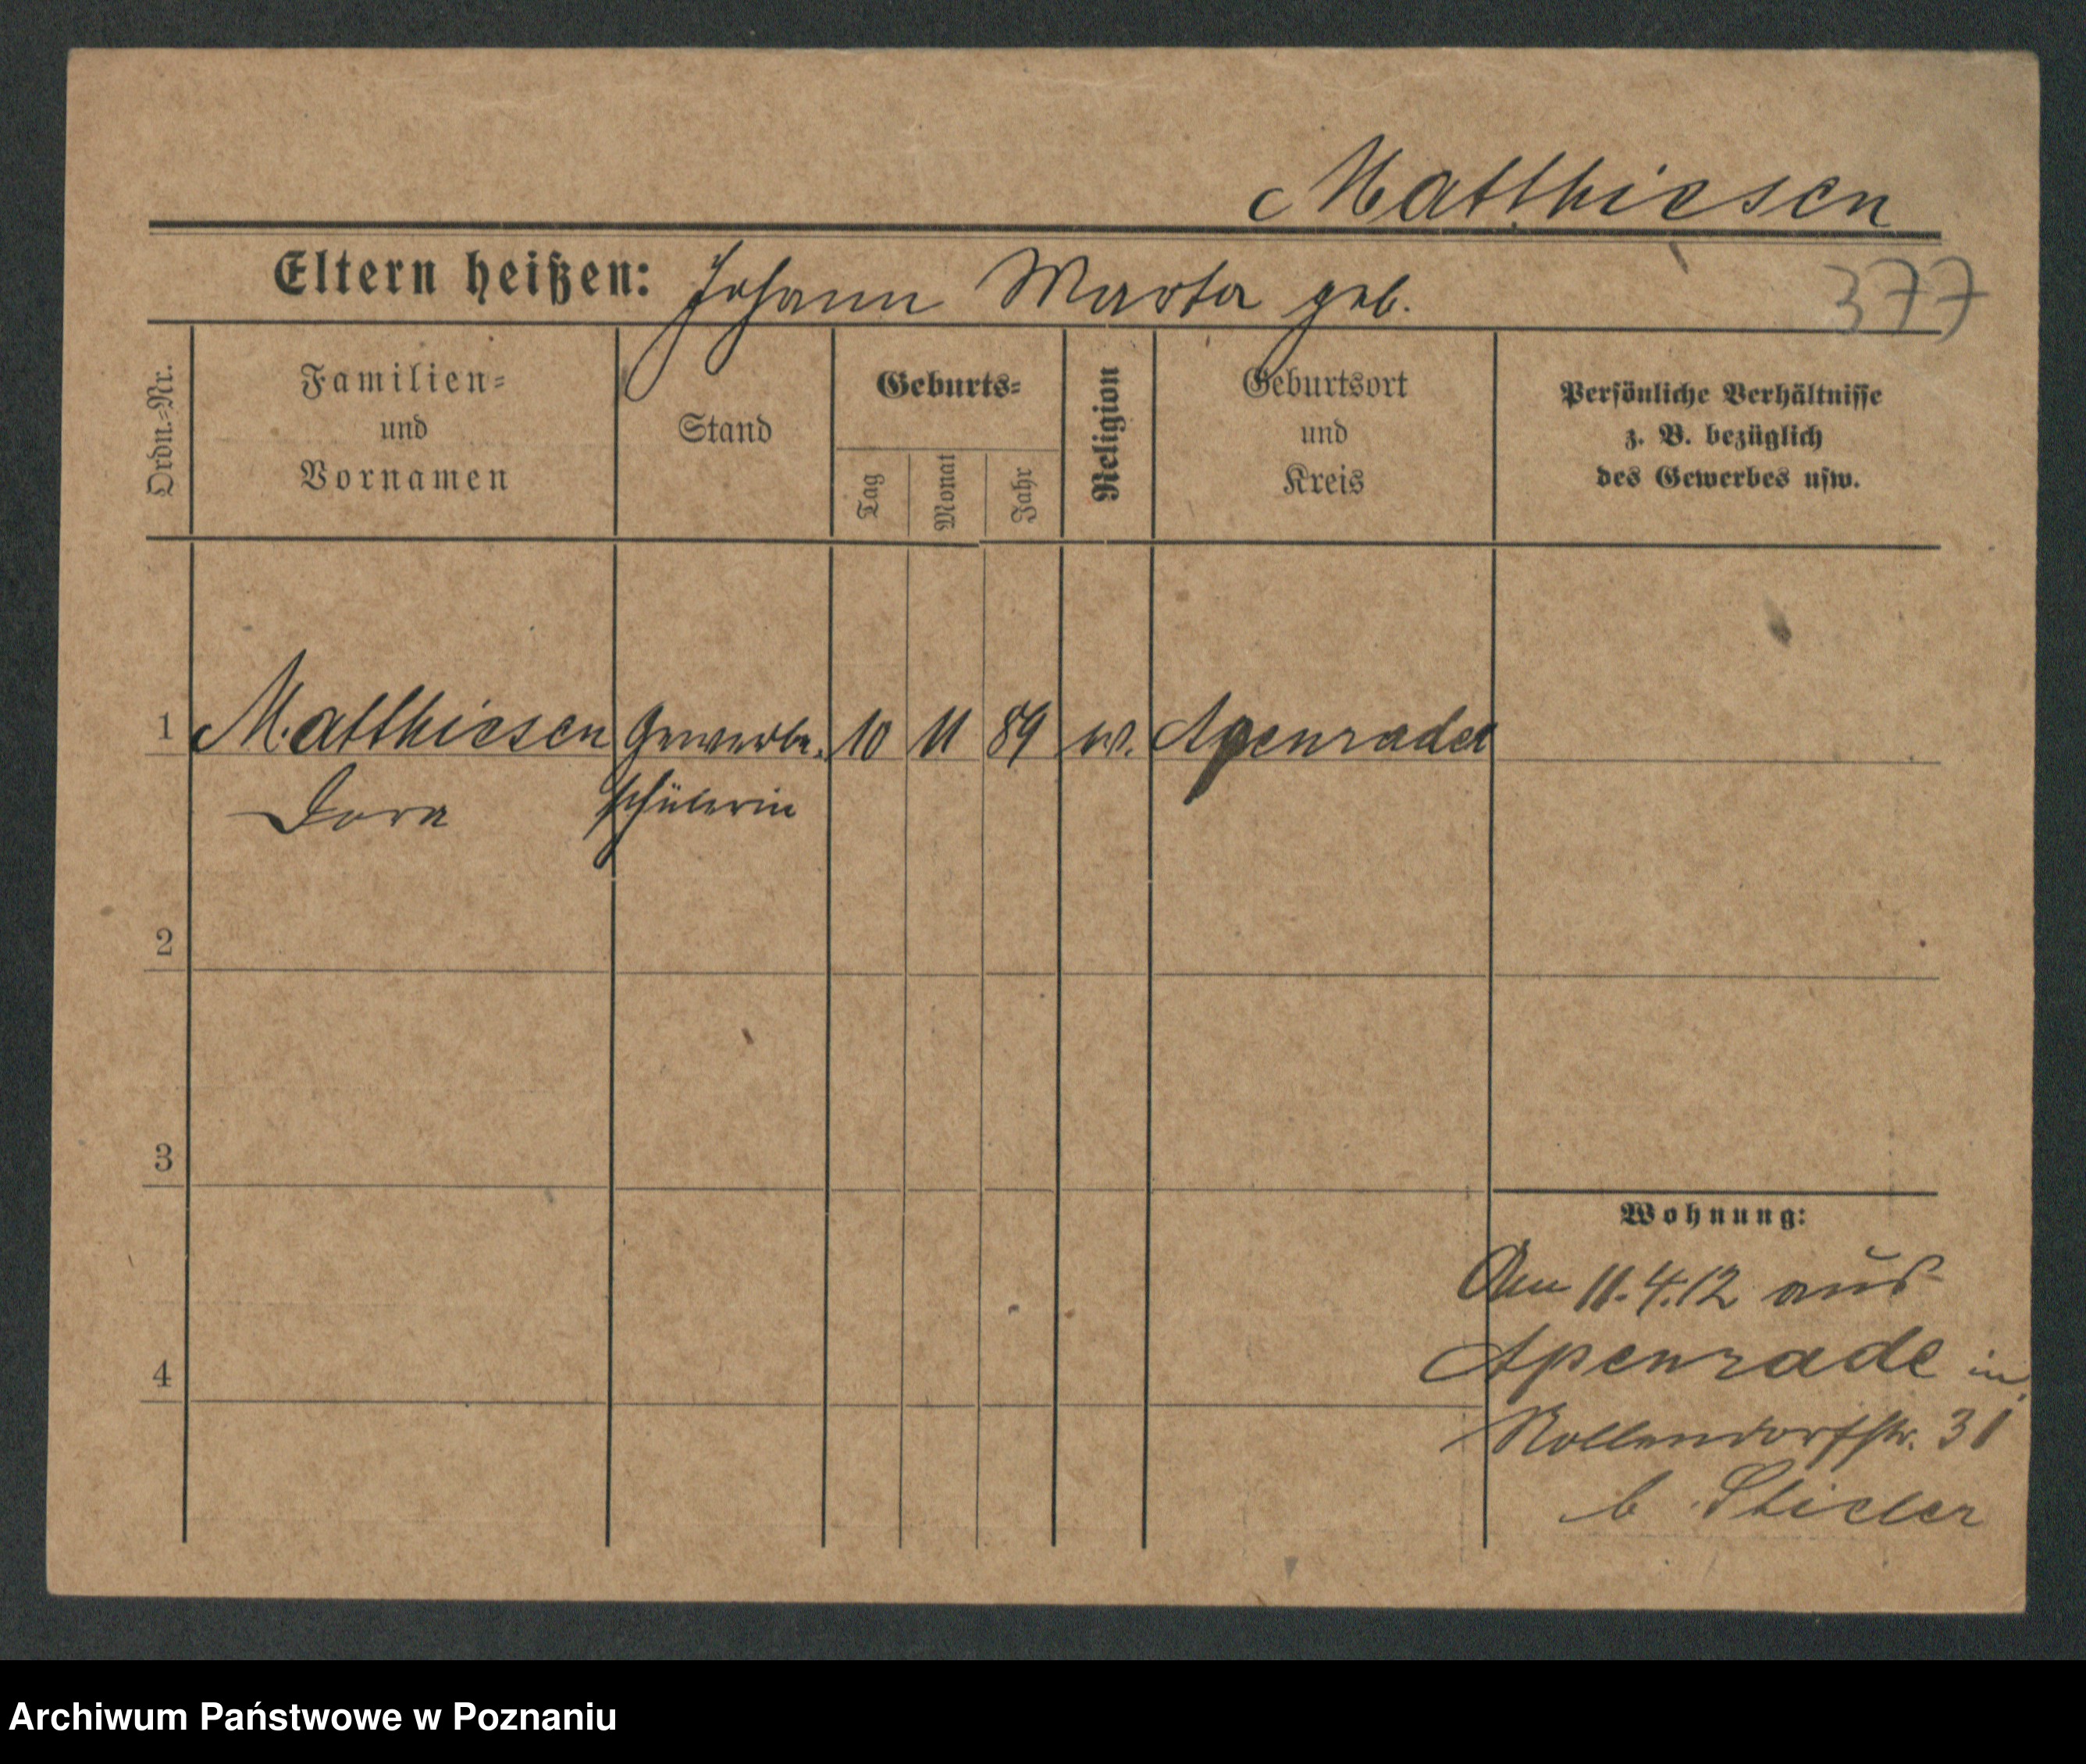 Matthiesen
Eltern heißen: Johann Marta geb.
377
Ordn.=Nr.
Familien=
und
Vornamen
Stand
Geburts=
Tag
Monat
Jahr
Religion
Geburtsort
und
Kreis
Persönliche Verhältnisse
z. B. bezüglich
des Gewerbes usw.
1 Matthiesen Gewerbe. 10 11 89 Apenrade
Dora schülerin
2
3
4
Wohnung:
Am 11.4.12 aus
Apenrade in
Nollendorfstr. 31
b Stieler
Archiwum Państwowe w Poznaniu